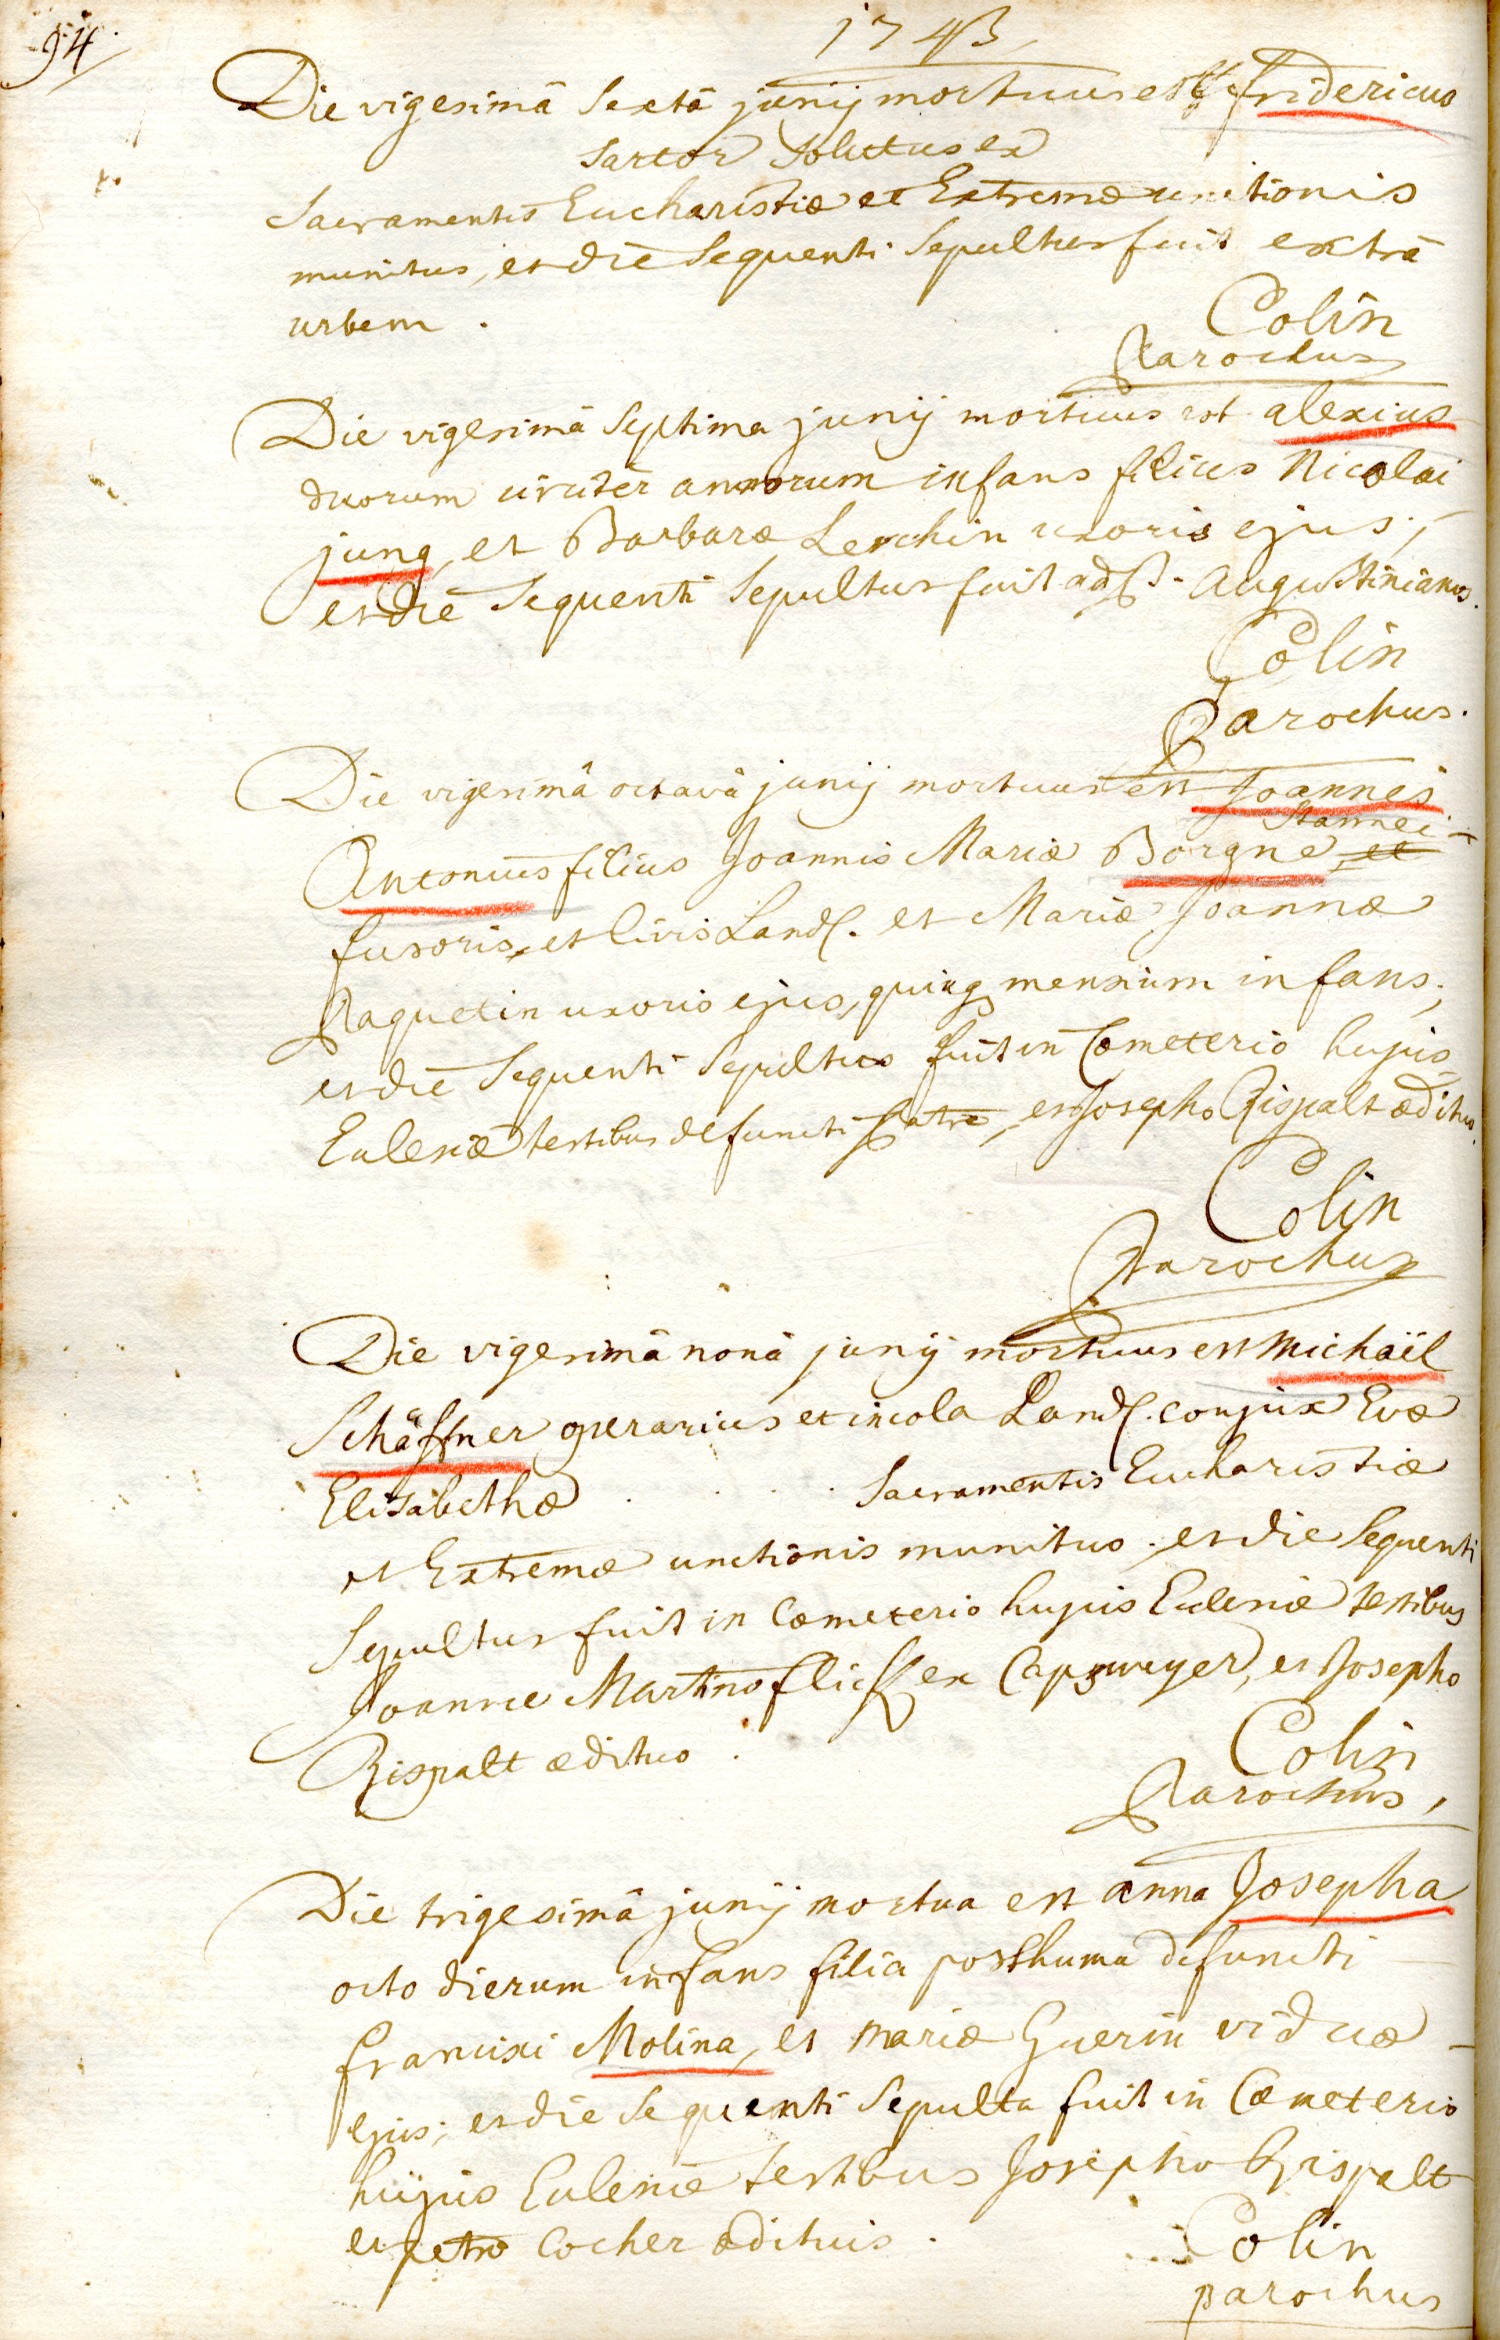 94.
1743
Die vigesimâ Sextâ junij mortuus est fridericus
sartor solutus ex
Sacramentis Eucharistiæ et Extremæ unctionis
munitus, et die Sequenti Sepultus fuit extrà
urbem.
Colin
Parochus
Die vigesimâ Septima junij mortuus est alexius
duorum circiter annorum infans filius Nicolai
jung, et Barbaræ Lerchin uxoris ejus;
et die Sequenti Sepultus fuit ad PP. Augustinianos.
Colin
Parochus.
Die vigesimâ octavâ junij mortuus est Joannes
Stannei
Antonius filius Joannis Mariæ Borgne, et
fusoris, et Civis Land. et Mariæ Joannæ
Paquetin uxoris ejus, quinq mensium infans;
et die Sequenti Sepultus fuit in Cœmeterio hujus
Eclesiæ testibus defuncti patre, et Josepho Rispalt ædituo.
Colin
Parochus
Die vigesimâ nonâ junij mortuus est Michaël
Schäffner operarius et incola Land. conjux Evæ
Elisabethæ . . . . Sacramentis Eucharistiæ
et Extremæ unctionis munitus. et die Sequenti
Sepultus fuit in Cœmeterio hujus Eclesiæ testibus
Joanne Martino flick ex Capsweyer, et Josepho
Rispalt ædituo.
Colin
Parochus,
Die trigesimâ junij mortua est anna Josepha
octo dierum infans filia posthuma defuncti
francisci Molina, et Mariæ Guerin viduæ
ejus; et die Sequenti Sepulta fuit in Cœmeterio
hujus Eclesiæ testibus Josepho Rispalt
et petro Cocher ædituis.
Colin
parochus